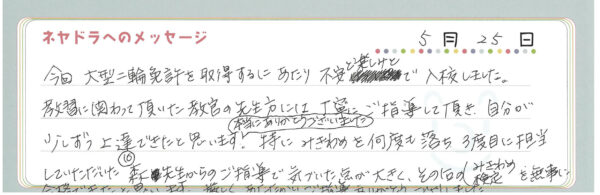 ネヤドラへのメッセージ
5月25日
今回 大型二輪免許を取得するにあたり 不安と楽しけどで入校しました。
教習に関わって頂いた教官の先生方には 丁寧にご指導して頂き、自分が
少しずつ上達できたと思います。特に みきわめを何度も落ち 3度目に担当
本当にありがとうございました
していただいた 森先生からのご指導で気づいた点が大きく、その日の みきわめ 検定 を無事に